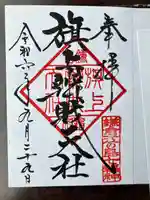 奉拝
旗上辨財天社
令和六年九月二十九日